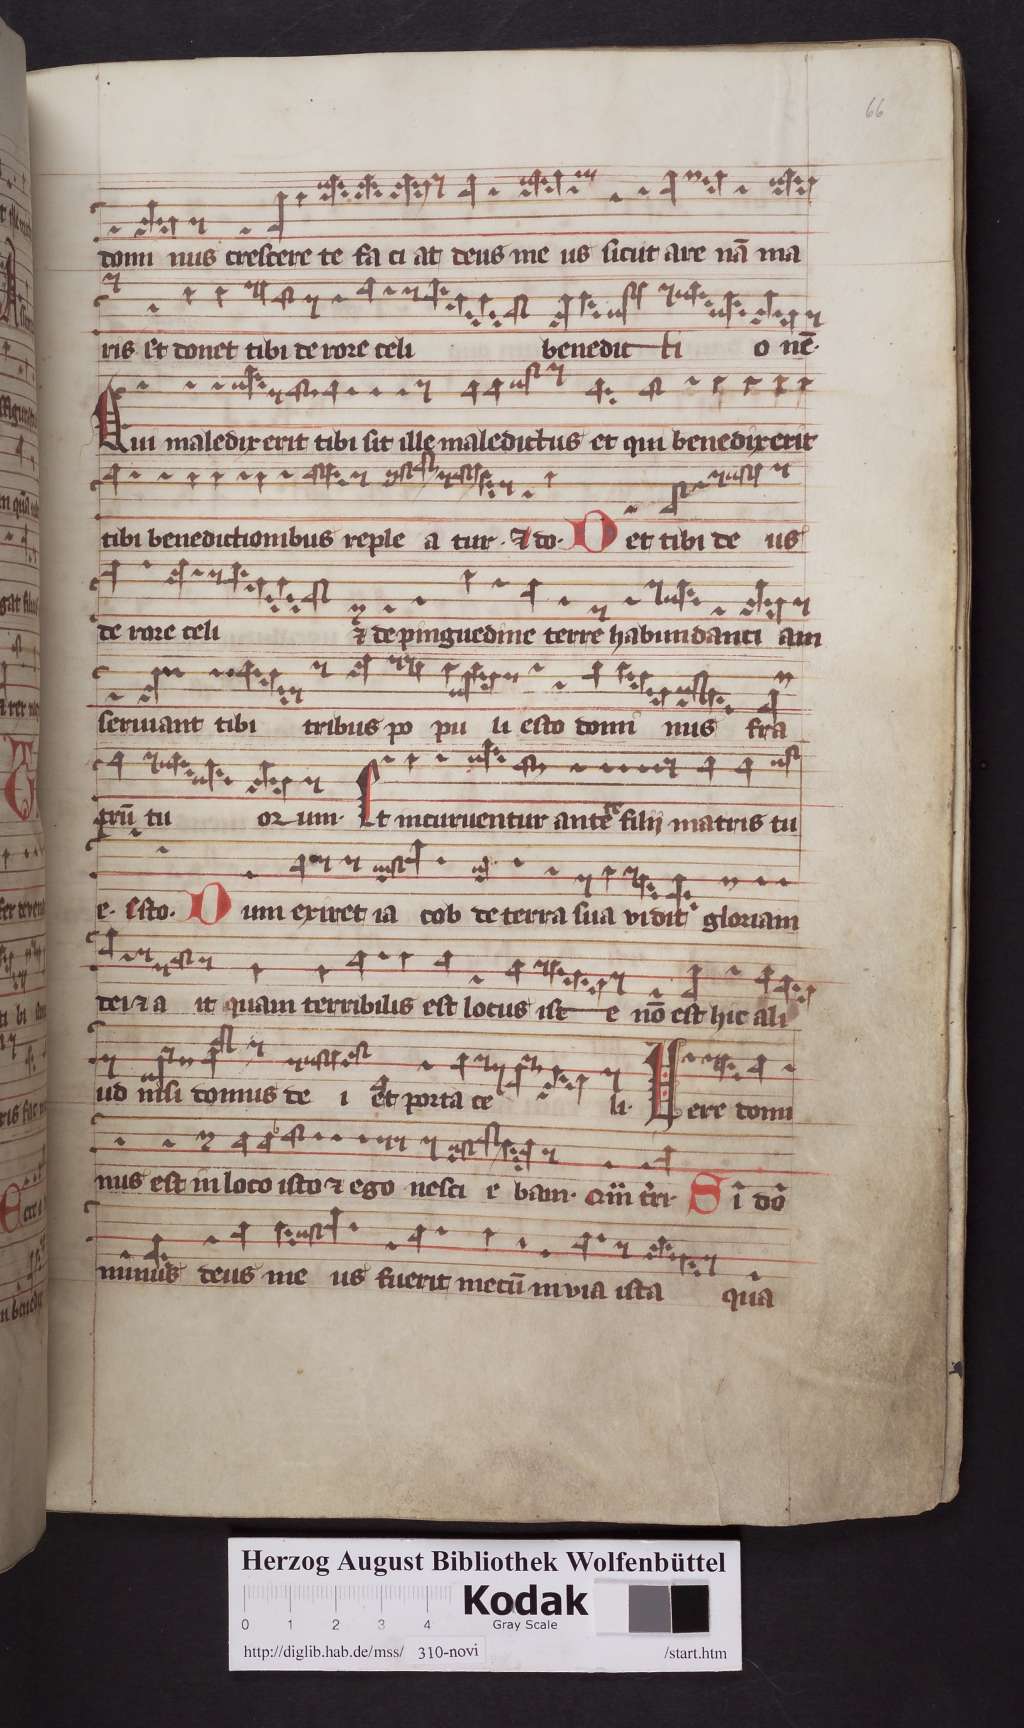 66
domi nus crescere te fa ci at deus me us sicut are nā ma
ris et donet tibi de rore celi benedic ti o nē.
Qui maledixerit tibi sit ille maledictus et qui benedixerit
tibi benedictionibus reple a tur. et do. Det tibi de us
de rore celi et de pinguedine terre habundanci am
seruiant tibi tribus po pu li esto domi nus fra
trū tu orum. Et incuruentur ante te filij matris tu
e. Esto. Dum exiret ia cob de terra sua vidit gloriam
dei et a it quam terribilis est locus ist e nō est hic ali
ud nisi domus de i et porta ce li. Uere domi
nus est in loco isto et ego nesci e bam. Si dō
minus deus me us fuerit mecū in via ista qua
Herzog August Bibliothek Wolfenbüttel
Kodak
Gray Scale
0 1 2 3 4
http://diglib.hab.de/mss/ 310-novi /start.htm